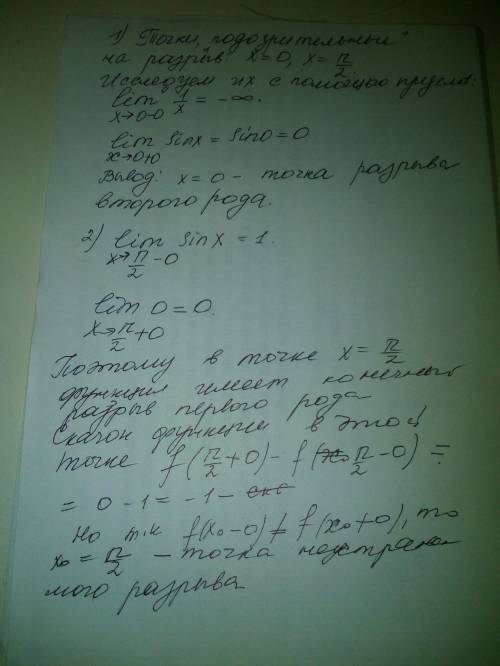 1) Точки, подозрительные
на разрыв: x=0, x= π/2
Исследуем их с помощью предела:
lim 1/x = -∞.
x→0-0
lim sinx = sin0 = 0
x→0+0
Вывод: x=0 - точка разрыва
второго рода.
2) lim sinx = 1.
x→π/2-0
lim 0 = 0.
x→π/2+0
Поэтому в точке x = π/2
функция имеет конечный
разрыв первого рода
Скачок функции в этой
точке f(π/2+0) - f(π/2-0) =
= 0-1 = -1 -
но т.к f(x₀-0) ≠ f(x₀+0), то
x₀ = π/2 - точка неустрани
мого разрыва